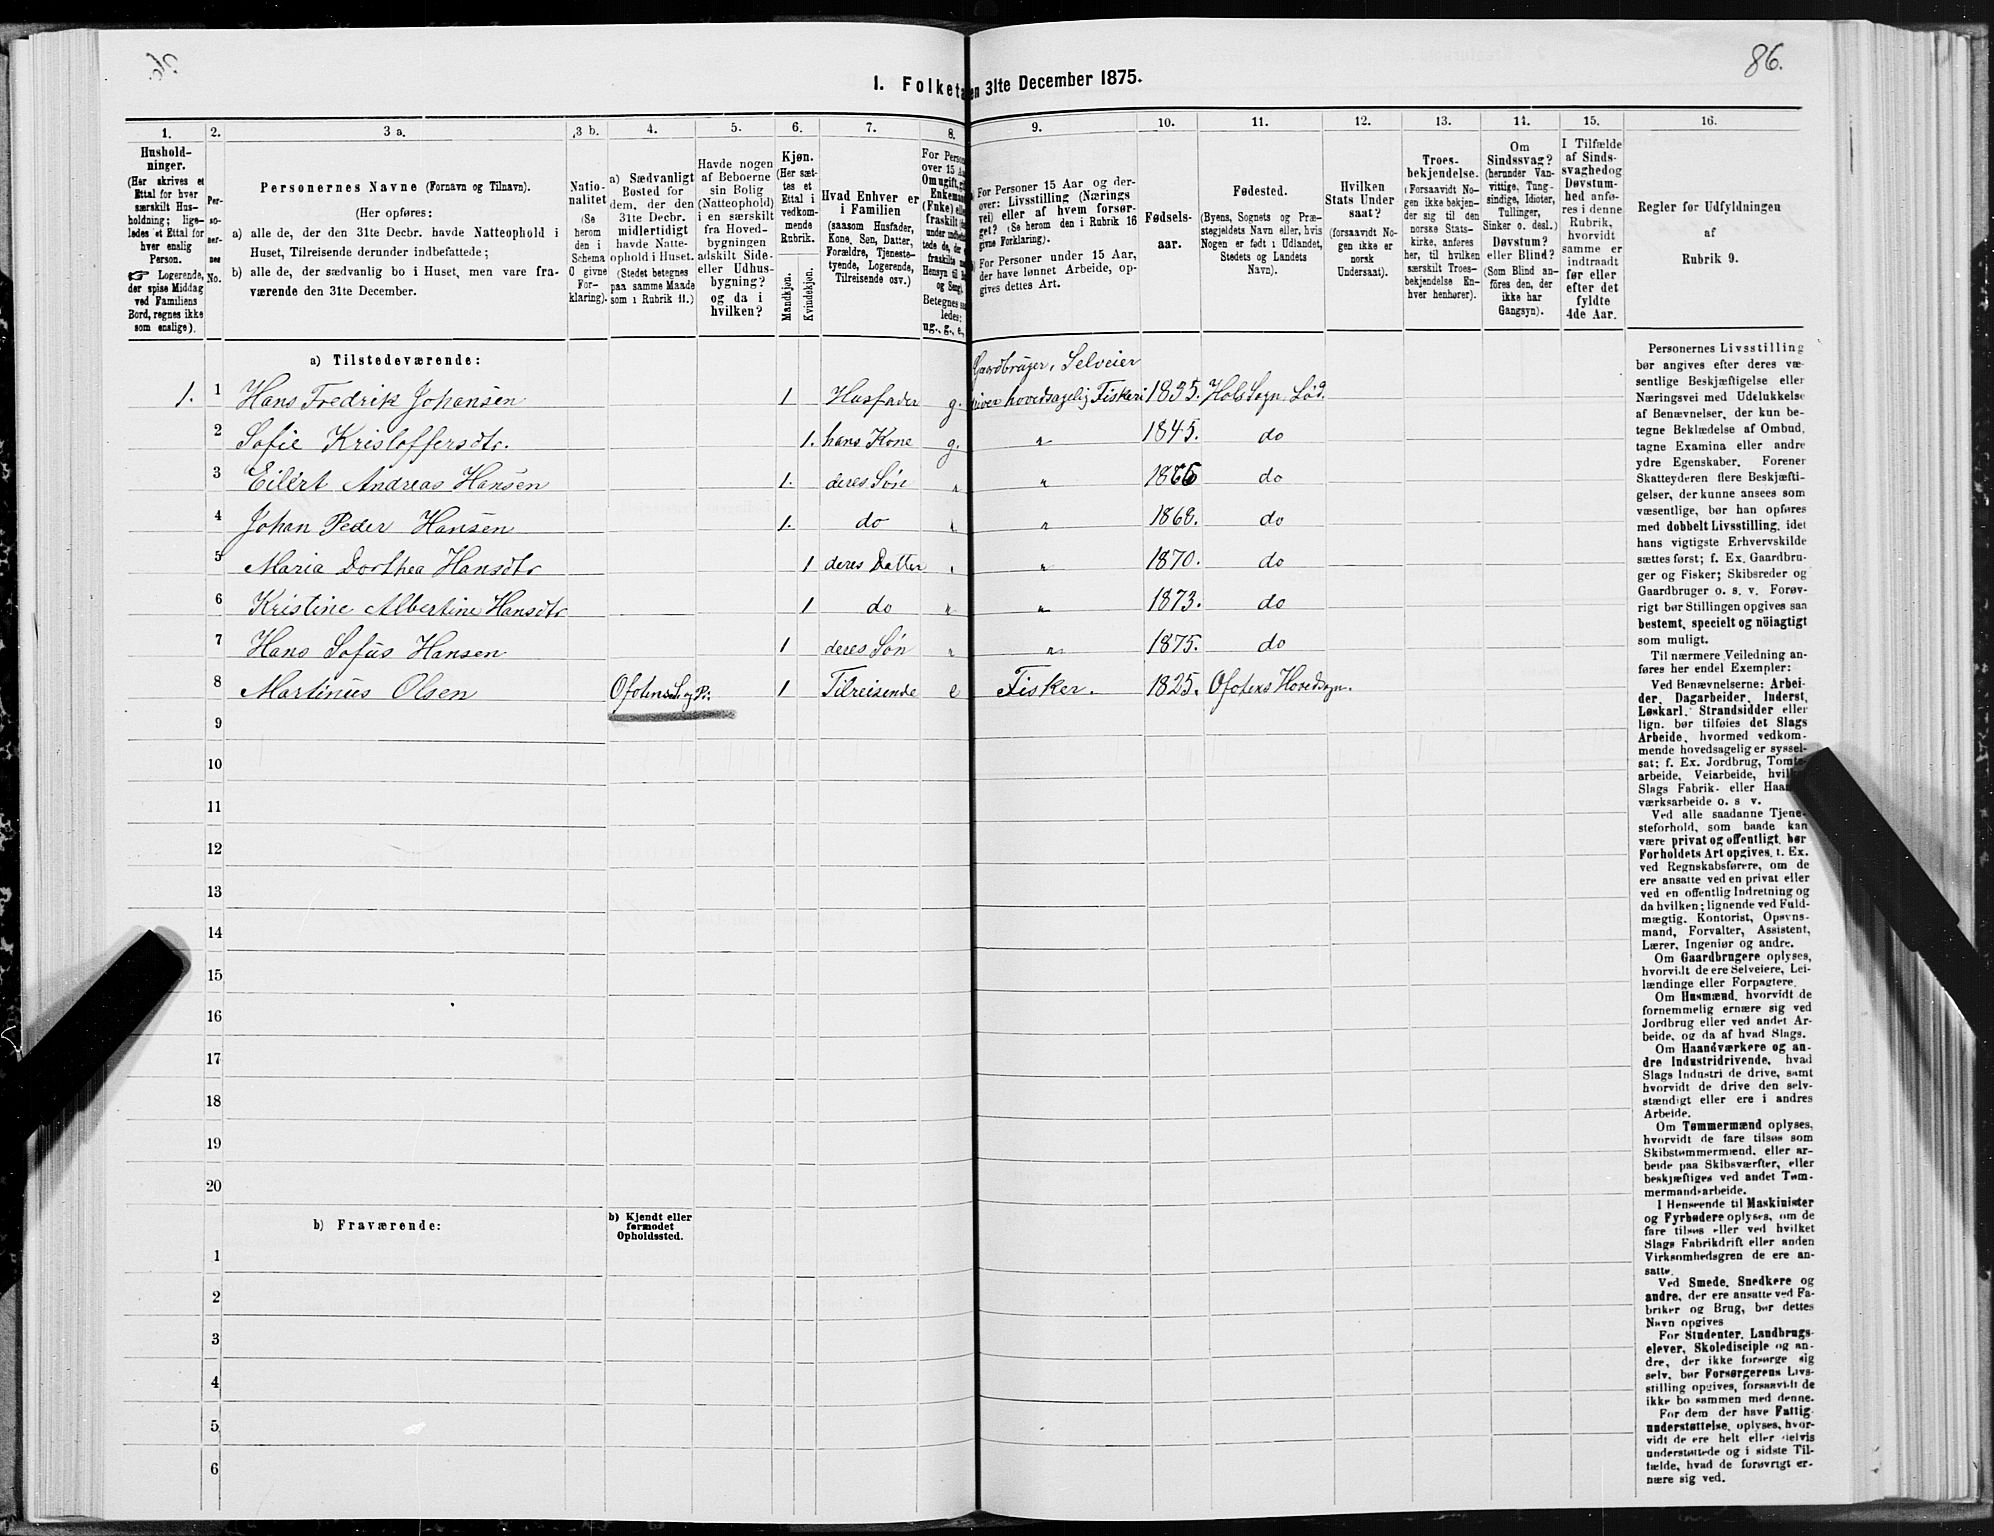 86.
1. Folketa
en 31te December 1875.
1. 2. 3 a. 3 b. 4. 5. 6. 7. 8. 9. 10. 11. 12. 13. 14. 15. 16.
Hushold-
ninger.
(Her skrives et
Ettal for hver
særskilt Hus-
holdning; lige-
ledes et Ettal for
hver enslig
Person.
☞ Logerende,
der spise Middag
ved Familiens
Bord, regnes ikke
som enslige).
Per-
so-
ner-
nes
No.
Personernes Navne (Fornavn og Tilnavn).
(Her opføres:
a) alle de, der den 31te Decbr. havde Natteophold i
Huset, Tilreisende derunder indbefattede;
b) alle de, der sædvanlig bo i Huset, men vare fra-
værende den 31te December.
Natio-
nalitet
(Se
herom
den i
Schema
O givne
For-
klaring).
a) Sædvanligt
Bosted for
dem, der den
31te Decbr.
midlertidigt
havde Natte-
ophold i Huset.
(Stedet betegnes
paa samme Maade
som i Rubrik 11.)
Havde nogen
af Beboerne
sin Bolig
(Natteophold)
i en særskilt
fra Hoved-
bygningen
adskilt Side-
eller Udhus-
bygning?
og da i
hvilken?
Kjøn.
(Her sæt-
tes et
Ettal i
vedkom-
mende
Rubrik.
Mandkjøn.
Kvindekjøn.
Hvad Enhver er
i Familien
(saasom Husfader,
Kone, Søn, Datter,
Forældre, Tjeneste-
tyende, Logerende,
Tilreisende osv.)
For Person
over 15 Aa
Om ugift, gi
Enkeman
(Fnke) elle
fraskilt
under indbefat
tede de, der
fraskilte m
Hensyn til Bo
og Seng).
Betegnes saa
ledes:
ug., g., e.,
For Personer 15 Aar og der-
over: Livsstilling (Nærings
vei) eller af hvem forsør-
get? (Se herom den i Rubrik 16
givne Forklaring).
For Personer under 15 Aar,
der have lønnet Arbeide, op-
gives dettes Art.
Fødsels-
aar.
Fødested.
(Byens, Sognets og Præ-
stegjeldets Navn eller, hvis
Nogen er født i Udlandet,
Stedets og Landets
Navn).
Hvilken
Stats Under
saat?
(forsaavidt No-
gen ikke er
norsk
Undersaat).
Troes-
bekjendelse.
(Forsaavidt No-
gen ikke bekjen-
der sig til den
norske Stats-
kirke, anføres
her, til hvilken
særskilt Troes-
bekjendelse En-
hver henhører).
Om
Sindssvag?
(herunder Van-
vittige, Tung-
sindige, Idioter,
Tullinger,
Sinker o. desl.)
Døvstum?
eller Blind?
(Som Blind an-
føres den, der
ikke har
Gangsyn).
I Tilfælde
af Sinds-
svaghed og
Døvstum-
hed anfø-
res i denne
Rubrik,
hvorvidt
samme er
indtraadt
før eller
efter det
fyldte
4de Aar.
Regler for Udfyldningen
af
Rubrik 9.
a) Tilstedeværende:
Gaardbruger, Selveier
1. 1 Hans Fredrik Johansen 1 Husfader g. river hovedsagelig Fiskeri 1835. Hols Sogn Lød.
2 Sofie Kristoffersdtr. 1. hans Kone g. " 1845. do
3 Eilert Andreas Hansen 1. deres Søn " " 1866 do
4 Johan Peder Hansen 1. do " " 1868. do
5 Maria Dorthea Hansdtr 1 deres Datter " " 1870. do
6 Kristine Albertine Hansdtr 1 do " " 1873. do
7 Hans Sofus Hansen 1 deres Søn " " 1875. do
8 Martinus Olsen Ofotens S. og P. 1 Tilreisende e Fisker. 1825. Ofotens Hovedsogn.
9
10
11
12
13
14
15
16
17
18
19
20
b) Fraværende:
b) Kjendt eller
formodet
Opholdssted.
1
2
3
4
5
6
Personernes Livsstilling
bør angives efter deres væ-
sentlige Beskjæftigelse eller
Næringsvei med Udelukkelse
af Benævnelser, der kun be-
tegne Beklædelse af Ombud,
tagne Examina eller andre
ydre Egenskaber. Forener
Skatteyderen flere Beskjæfti-
gelser, der kunne ansees som
væsentlige, bør han opføres
med dobbelt Livsstilling, idet
hans vigtigste Erhvervskilde
sættes først; f. Ex. Gaardbru-
ger og Fisker; Skibsreder og
Gaardbruger o. s. v. Forøv-
rigt bør Stillingen opgives saa
bestemt, specielt og nöiagtigt
som muligt.
Til nærmere Veiledning an-
føres her endel Exempler:
Ved Benævnelserne: Arbei-
der, Dagarbeider, Inderst,
Løskarl, Strandsidder eller
lign. bør tilføies det Slags
Arbeide, hvormed vedkom-
mende hovedsagelig er syssel-
sat; f. Ex. Jordbrug, Tomt-
arbeide, Veiarbeide, hvil
Slags Fabrik- eller Haan
værksarbeide o. s v.
Ved alle saadanne Tjene-
steforhold, som baade kan
være privat og offentligt, bør
Forholdets Art opgives, t. Ex.
ved Regnskabsførere, om de
ere ansatte ved en privat eller
ved en offentlig Indretning og
da hvilken; lignende ved Fuld-
mægtig, Kontorist, Opsyns-
mand, Forvalter, Assistent,
Lærer, Ingeniør og andre.
Om Gaardbrugere oplyses,
hvorvidt de ere Selveiere, Lei-
lændinge eller Forpagtere.
Om Husmænd, hvorvidt de
fornemmelig ernære sig ved
Jordbrug eller ved andet Ar-
beide, og da af hvad Slags.
Om Haandværkere og an-
dre Industridrivende, hvad
Slags Industri de drive, samt
hvorvidt de drive den selv-
stændigt eller ere i andres
Arbeide.
Om Tømmermænd oplyses,
hvorvidt de fare tilsøs som
Skibstømmermænd, eller ar-
beide paa Skibsværfter, eller
beskjæftiges ved andet Tøm-
mermandsarbeide.
I Henseende til Maskinister
og Fyrbødere oplyses, om de
fare tilsøs eller ved hvilket
Slags Fabrikdrift eller anden
Virksomhedsgren de ere an-
satte.
Ved Smede, Snedkere og
andre, der ere ansatte ved Fa-
briker og Brug, bør dettes
Navn opgives
For Studenter, Landbrugs-
elever, Skoledisciple og an-
dre, der ikke forsørge sig
selv, bør Forsørgerens Livs-
stilling opgives, forsaavidt de
ikke bo sammen med denne.
For dem der have Fattig-
understøttelse, oplyses, hvor-
vidt de ere helt eller delvis
understøttede og i sidste Til-
fælde, hvad de forøvrigt er-
nære sig ved.